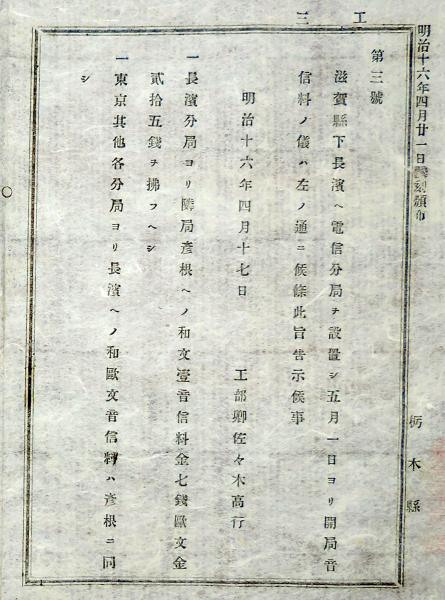 工 三
明治十六年四月廿一日飜刻頒布
栃木縣
第三號
滋賀縣下長濱ヘ電信分局ヲ設置シ五月一日ヨリ開局音
信料ノ儀ハ左ノ通ニ候條此旨告示候事
明治十六年四月十七日 工部卿佐々木高行
一長濱分局ヨリ隣局彥根ヘノ和文壹音信料金七錢歐文金
貳拾五錢ヲ拂フヘシ
一東京其他各分局ヨリ長濱ヘノ和歐文音信料ハ彥根ニ同
シ